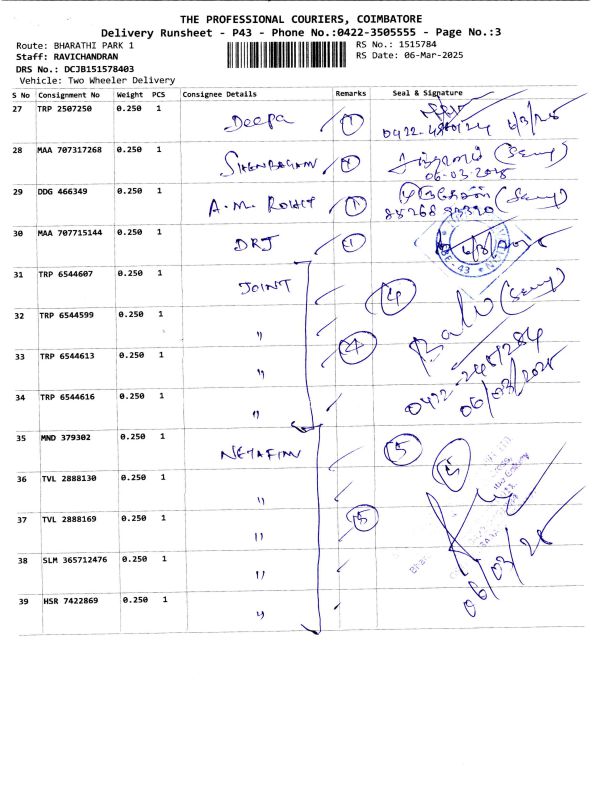 THE PROFESSIONAL COURIERS, COIMBATORE
Delivery Runsheet - P43 - Phone No.:0422-3505555 - Page No.:3
Route: BHARATHI PARK 1
RS No.: 1515784
Staff: RAVICHANDRAN
RS Date: 06-Mar-2025
DRS No.: DCJB151578403
Vehicle: Two Wheeler Delivery
S No Consignment No Weight PCS Consignee Details Remarks Seal & Signature
27 TRP 2507250 0.250 1 Deepa 1 6/3/25
28 MAA 707317268 0.250 1 SHENBAGAM 1 சண்முகம்
06-03-2025
29 DDG 466349 0.250 1 A.M. ROHIT 1
30 MAA 707715144 0.250 1 DRJ 1 6/3/2025
31 TRP 6544607 0.250 1 JOINT 4
32 TRP 6544599 0.250 1 " Balu
33 TRP 6544613 0.250 1 " 4 0422-2451284
34 TRP 6544616 0.250 1 " 06/03/2025
35 MND 379302 0.250 1 NETAFIM 5
36 TVL 2888130 0.250 1 " 5
37 TVL 2888169 0.250 1 " 5
38 SLM 365712476 0.250 1 " 06/03/25
39 HSR 7422869 0.250 1 "